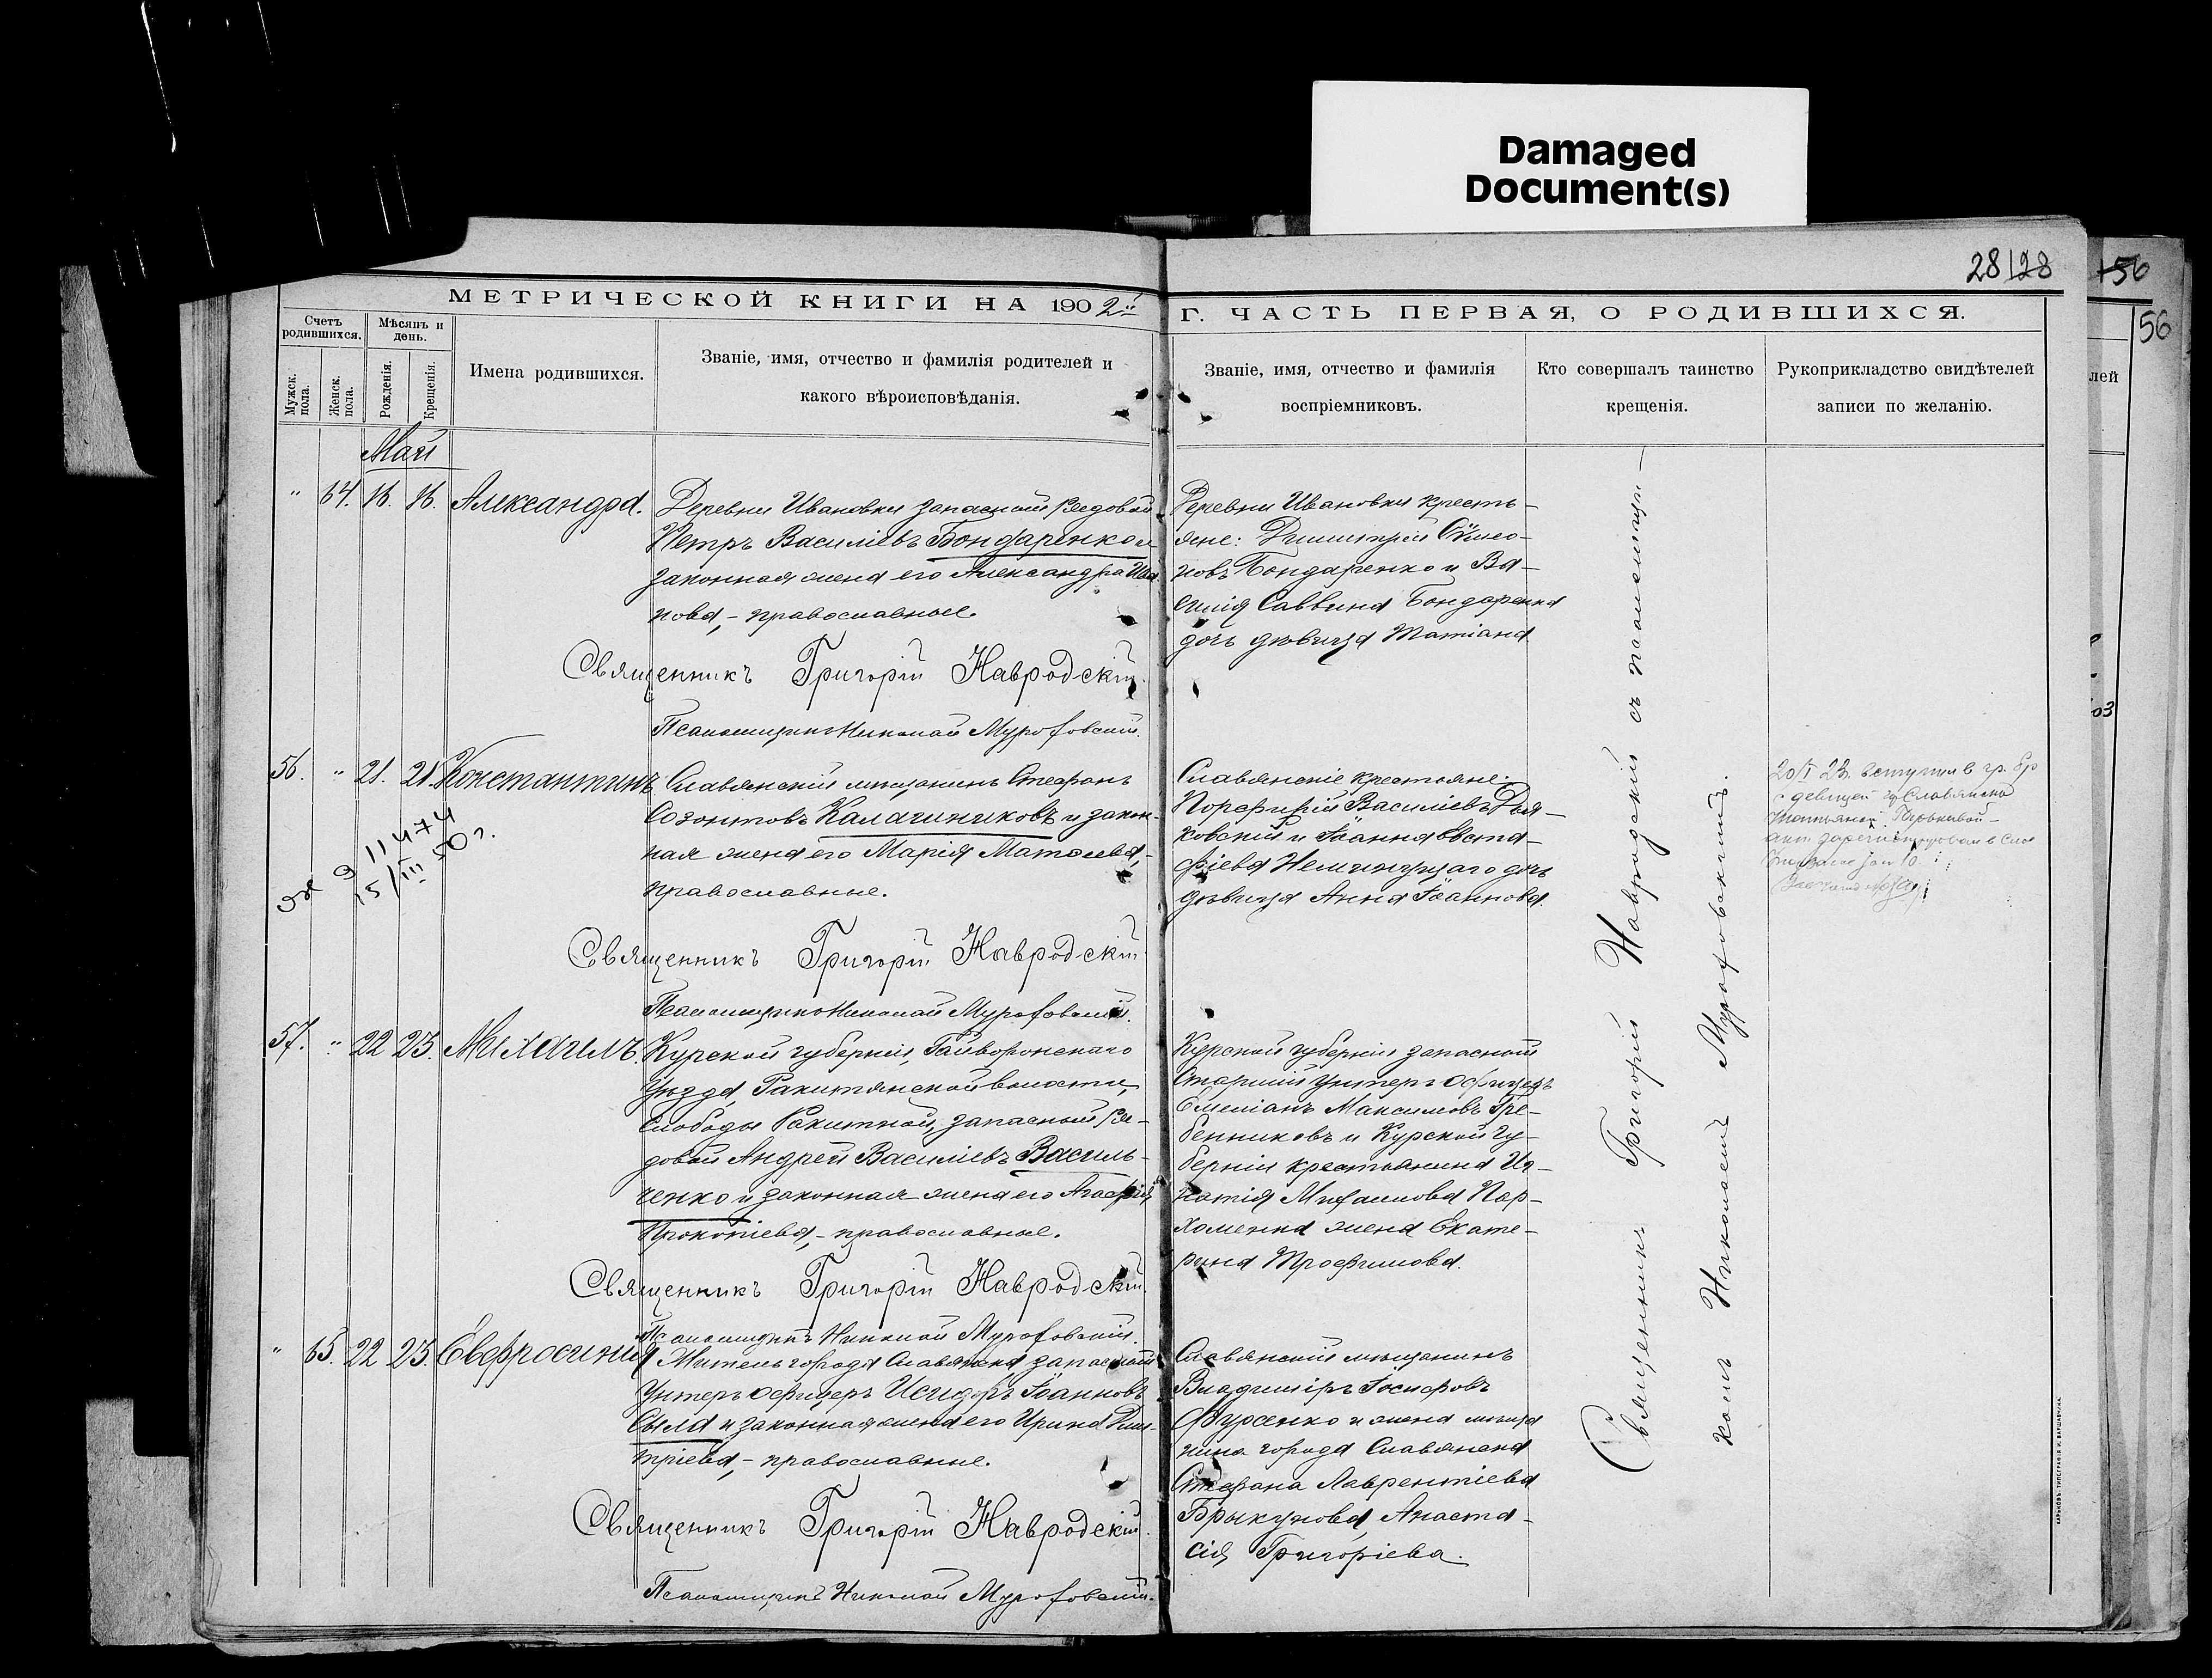 Damaged
Document(s)
28 128
56
56
МЕТРИЧЕСКОЙ КНИГИ НА 1902й
Г. ЧАСТЬ ПЕРВАЯ, О РОДИВШИХСЯ.
Счетъ родившихся.
Мужск. пола.
Женск. пола.
Мѣсяцъ и день.
Рожденія.
Крещенія.
Имена родившихся.
Званіе, имя, отчество и фамилія родителей и
какого вѣроисповѣданія.
Званіе, имя, отчество и фамилія
воспріемниковъ.
Кто совершалъ таинство
крещенія.
Рукоприкладство свидѣтелей
записи по желанію.
лей
03
Май
" 64. 16. 16. Александра.
Деревни Ивановки запасный рядовой
Петръ Василіевъ Бондаренко и
законная жена его Александра Ива
нова, - православные.
Священникъ Григорій Навродскій.
Псаломщикъ Николай
Деревни Ивановки кресть-
яне: Димитрій Сѵмео-
новъ Бондаренко и Ва-
силія Саввина Бондаренка
дочь дѣвица Татіана
56. " 21. 21. Константинъ
Славянскій мѣщанинъ Стефанъ
Созонтовъ Калашниковъ и закон-
ная жена его Марія Матѳеева,
православные.
Священникъ Григорій Навродскій
Псаломщикъ Николай
Славянскіе крестьяне:
Порфирій Василіевъ Дья-
ковскій и Іоанна Евста-
фіева дочь
дѣвица Анна Іоаннова.
э 11474
15/III 50 г.
20/I 23. вступил в гр. бр
с девицей гр. Славянска
57. " 22 23. Михаилъ.
Курской губерніи, Грайворонскаго
уѣзда, Ракитянской волости,
слободы Ракитной, запасный ря-
довой Андрей Василіевъ Василь-
ченко и законная жена его Агафія
Прокопіева, - православные.
Священникъ Григорій Навродскій.
Псаломщикъ Николай
Курской губерніи запасный
старшій унтеръ офицеръ
Емеліанъ Максимовъ Гре-
бенниковъ и Курской гу-
берніи крестьянина Иг-
натія Михаилова Пар-
хоменка жена Екате-
рина Трофимова.
" 65. 22 23. Евфросинія
Житель города Славянска запасный
унтеръ офицеръ Исидоръ Іоанновъ
Сыла и законная жена его Ирина Дим-
тріева, - православные.
Священникъ Григорій Навродскій.
Псаломщикъ Николай
Славянскій мѣщанинъ
Владиміръ Іосифовъ
Фурсенко и жена мѣща
нина города Славянска
Стефана Лаврентіева
Брыкунова, Анаста-
сія Григоріева.
Священникъ Григорій Навродскій съ псаломщи-
комъ Николаемъ